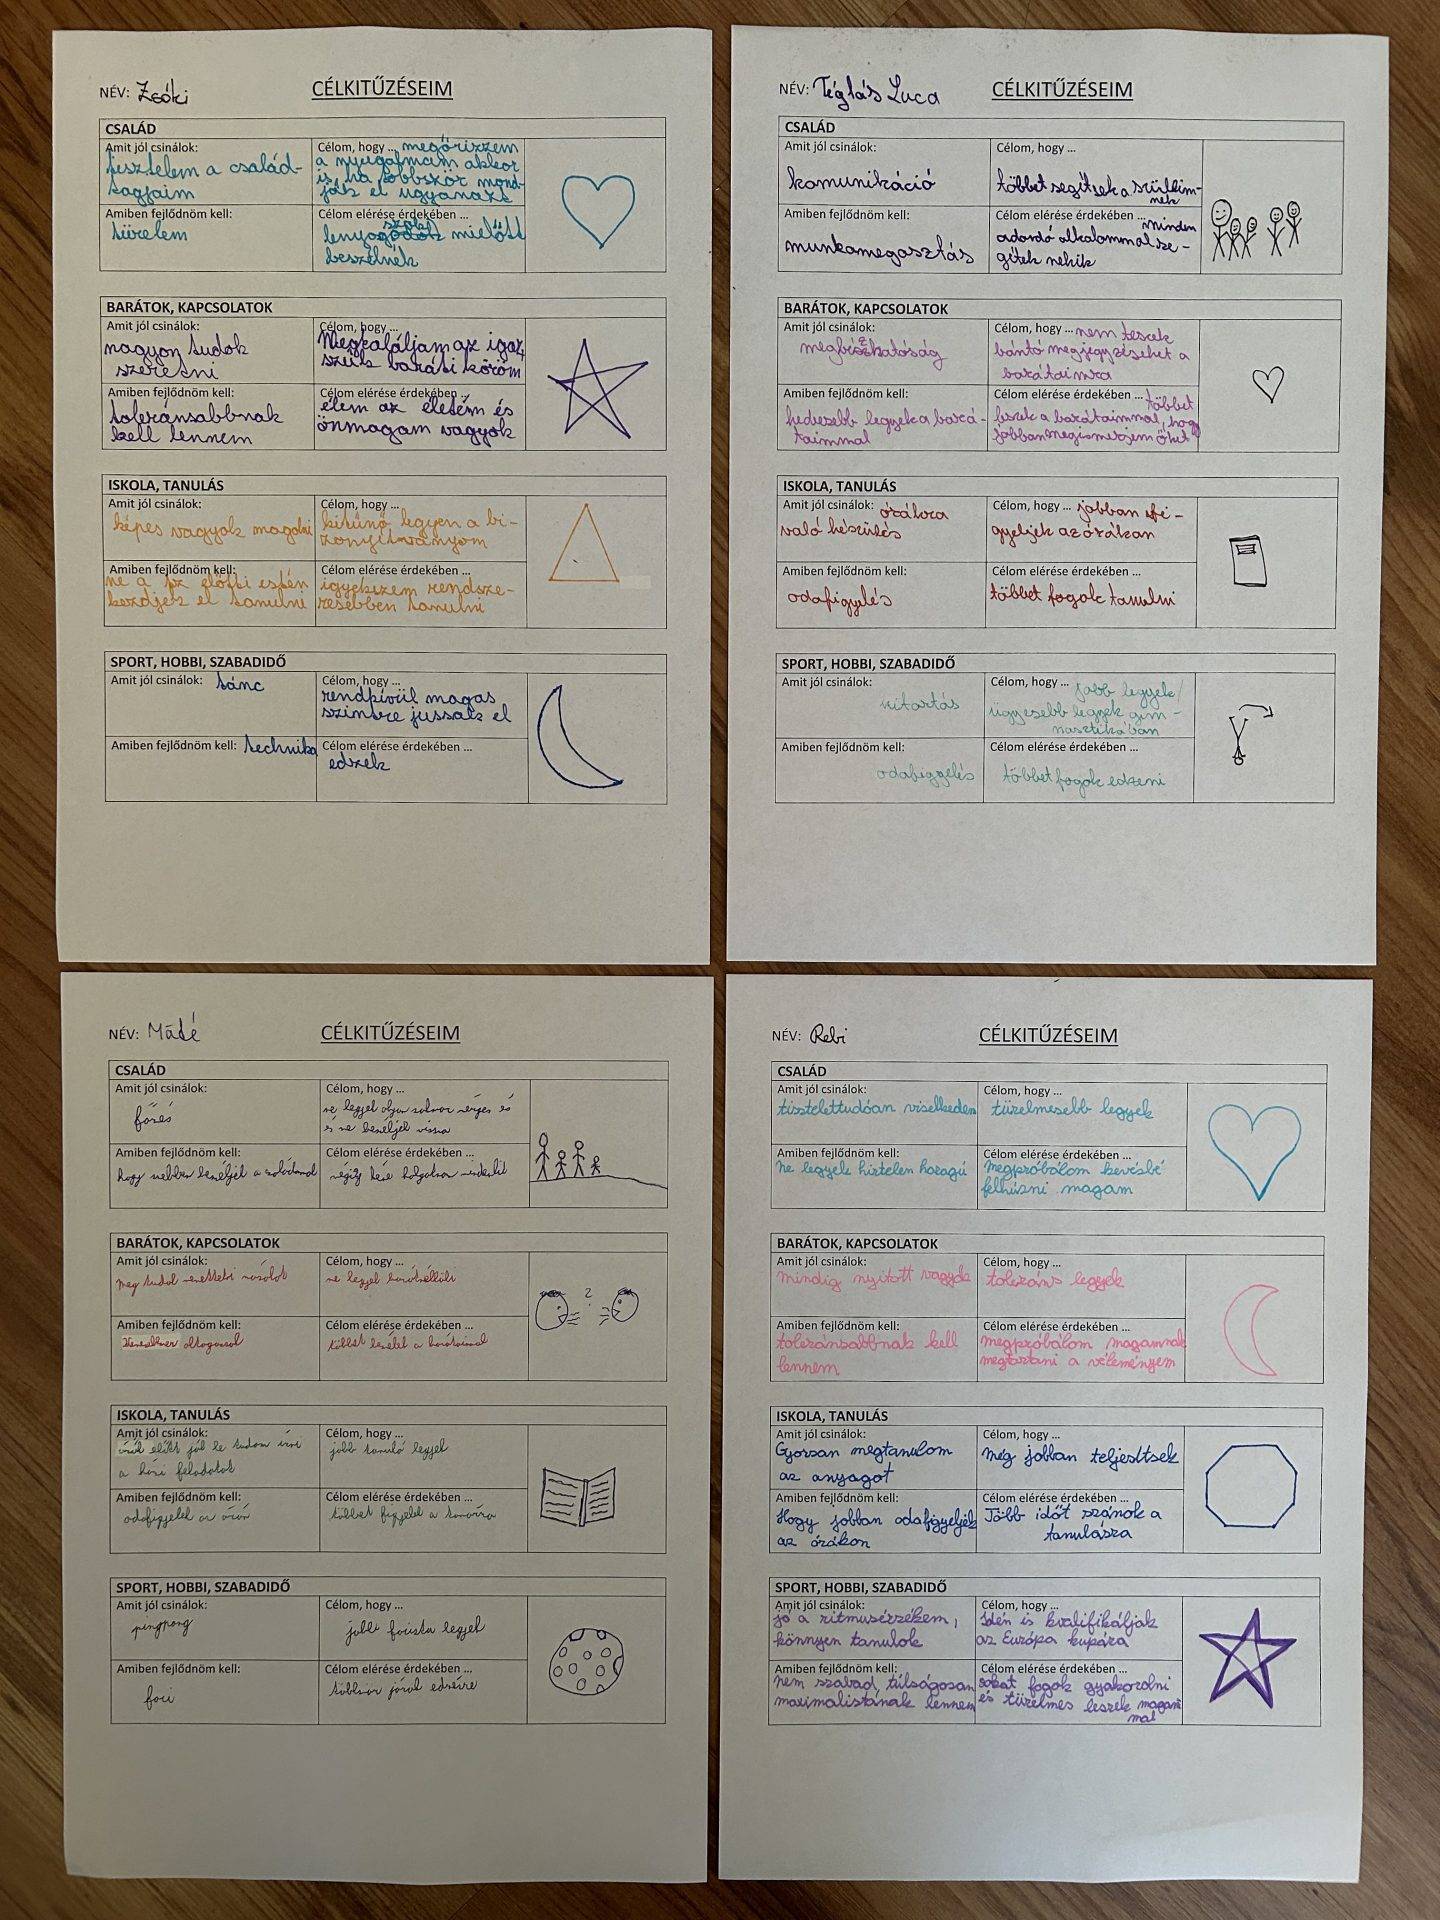 NÉV: Zsóki
CÉLKITŰZÉSEIM
CSALÁD
Amit jól csinálok:
tesztelem a család-
tagjaim
Célom, hogy ... megőrizzem
a nyugalmam akkor
is, ha többször mond-
ják el ugyanazt
Amiben fejlődnöm kell:
türelem
Célom elérése érdekében ...
szoks
lenyugodok mielőtt
beszélnék
BARÁTOK, KAPCSOLATOK
Amit jól csinálok:
nagyon tudok
szeretni
Célom, hogy ...
Megtaláljam az igaz,
szűk baráti köröm
Amiben fejlődnöm kell:
toleránsabbnak
kell lennem
Célom elérése érdekében ...
élem az életem és
önmagam vagyok
ISKOLA, TANULÁS
Amit jól csinálok:
képes vagyok magolni
Célom, hogy ...
kitűnő legyen a bi-
zonyítványom
Amiben fejlődnöm kell:
ne a tz előtti estén
kezdjek el tanulni
Célom elérése érdekében ...
igyekszem rendsze-
resebben tanulni
SPORT, HOBBI, SZABADIDŐ
Amit jól csinálok: tánc
Célom, hogy ...
rendkívül magas
szintre jussak el
Amiben fejlődnöm kell: technika
Célom elérése érdekében ...
edzek
NÉV: Téglás Luca
CÉLKITŰZÉSEIM
CSALÁD
Amit jól csinálok:
komunikáció
Célom, hogy ...
többet segítsek a szüleim-
nek
Amiben fejlődnöm kell:
munkamegasztás
Célom elérése érdekében ... minden
adandó alkalommal se-
gítek nekik
BARÁTOK, KAPCSOLATOK
Amit jól csinálok:
megbízhatóság
Célom, hogy ... nem teszek
bántó megjegyzéseket a
barátaimra
Amiben fejlődnöm kell:
kedvesebb legyek a bará-
taimmal
Célom elérése érdekében ... többet
leszek a barátaimmal, hogy
jobban megismerjem őket
ISKOLA, TANULÁS
Amit jól csinálok: órákra
való készülés
Célom, hogy ... jobban fi-
gyeljek az órákon
Amiben fejlődnöm kell:
odafigyelés
Célom elérése érdekében ...
többet fogok tanulni
SPORT, HOBBI, SZABADIDŐ
Amit jól csinálok:
kitartás
Célom, hogy ... jobb legyek/
ügyesebb legyek gim-
nasztikában
Amiben fejlődnöm kell:
odafigyelés
Célom elérése érdekében ...
többet fogok edzeni
NÉV: Máté
CÉLKITŰZÉSEIM
CSALÁD
Amit jól csinálok:
főzés
Célom, hogy ...
ne legyek olyan sokszor mérges és
és ne beszéljek vissza
Amiben fejlődnöm kell:
hogy szebben beszéljek a családommal
Célom elérése érdekében ...
végig hallgatom mindenkit
BARÁTOK, KAPCSOLATOK
Amit jól csinálok:
meg tudok nevettetni másokat
Célom, hogy ...
ne legyek
Amiben fejlődnöm kell:
Célom elérése érdekében ...
többet beszélek a barátaimmal
ISKOLA, TANULÁS
Amit jól csinálok:
órák előtt jól le tudom írni
a házi feladatot
Célom, hogy ...
jobb tanuló legyek
Amiben fejlődnöm kell:
odafigyelek az órán
Célom elérése érdekében ...
többet figyelek a tanárra
SPORT, HOBBI, SZABADIDŐ
Amit jól csinálok:
pingpong
Célom, hogy ...
jobb focista legyek
Amiben fejlődnöm kell:
foci
Célom elérése érdekében ...
többször járok edzésre
NÉV: Rebi
CÉLKITŰZÉSEIM
CSALÁD
Amit jól csinálok:
tisztelettudóan viselkedem
Célom, hogy ...
türelmesebb legyek
Amiben fejlődnöm kell:
Ne legyek hirtelen haragú
Célom elérése érdekében ...
Megpróbálom kevésbé
felhúzni magam
BARÁTOK, KAPCSOLATOK
Amit jól csinálok:
mindig nyitott vagyok
Célom, hogy ...
toleráns legyek
Amiben fejlődnöm kell:
toleránsabbnak kell
lennem
Célom elérése érdekében ...
megpróbálom magamnak
megtartani a véleményem
ISKOLA, TANULÁS
Amit jól csinálok:
Gyorsan megtanulom
az anyagot
Célom, hogy ...
még jobban teljesítsek
Amiben fejlődnöm kell:
Hogy jobban odafigyeljek
az órákon
Célom elérése érdekében ...
Több időt szánok a
tanulásra
SPORT, HOBBI, SZABADIDŐ
Amit jól csinálok:
jó a ritmusérzékem,
könnyen tanulok
Célom, hogy ...
Idén is kvalifikáljak
az Európa kupára
Amiben fejlődnöm kell:
nem szabad túlságosan
maximalistának lennem
Célom elérése érdekében ...
sokat fogok gyakorolni
és türelmes leszek magam-
mal